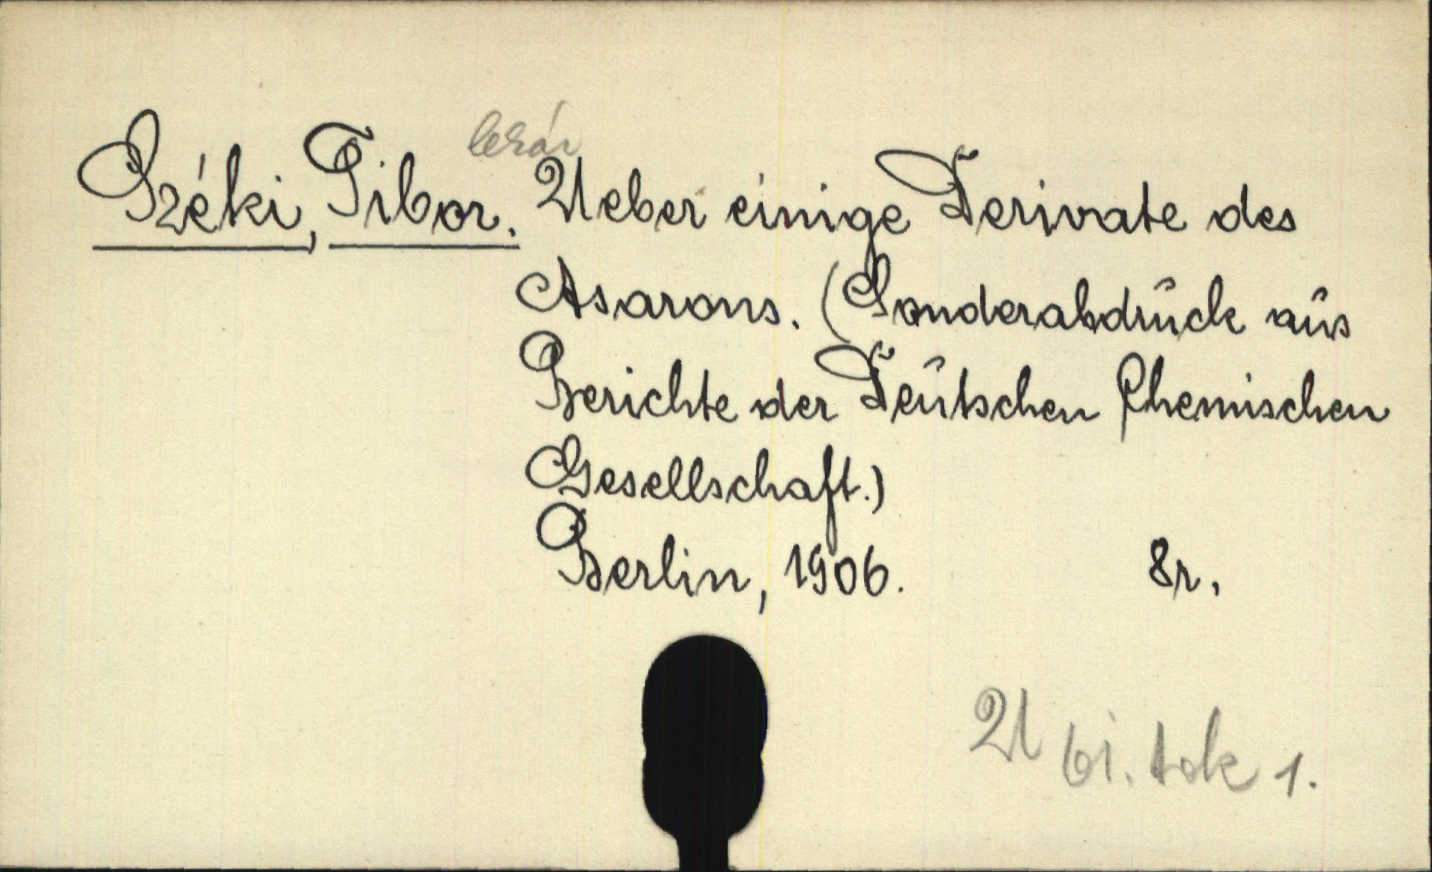 lezár
Széki, Tibor. Ueber einige Derivate des
Asarons. (Sonderabdrŭck aŭs
Berichte der Deŭtschen Chemischen
Gesellschaft.)
Berlin, 1906. 8r.
U bi. tok 1.